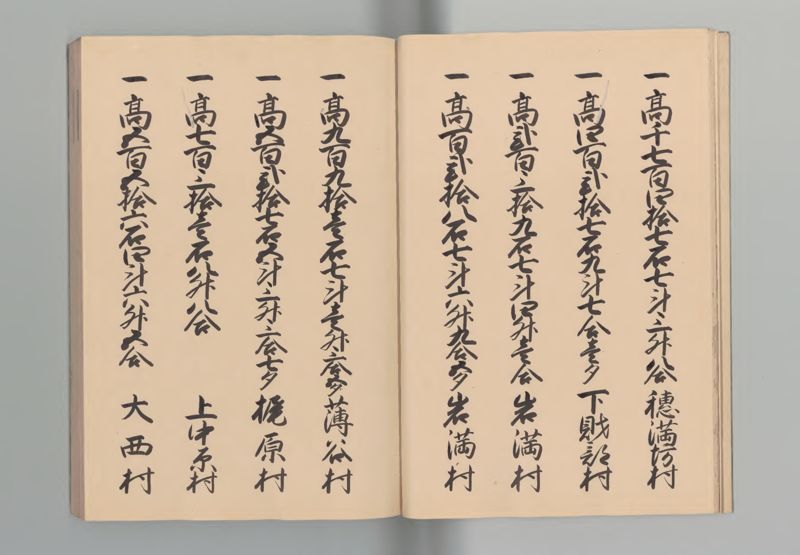 一高千七百四拾七石七斗三升八合 穂満坊村
一高四百弐拾七石九斗七合壱夕 下財部村
一高弐百三拾九石七斗四升壱合 岩満村
一高百弐拾八石七斗六升九合五夕 岩満村
一高九百九拾壱石七斗壱升三合五夕 薄谷村
一高五百弐拾七石五斗三升三合七夕 梶原村
一高七百三拾壱石八升八合 上中原村
一高五百五拾六石四斗六升五合 大西村